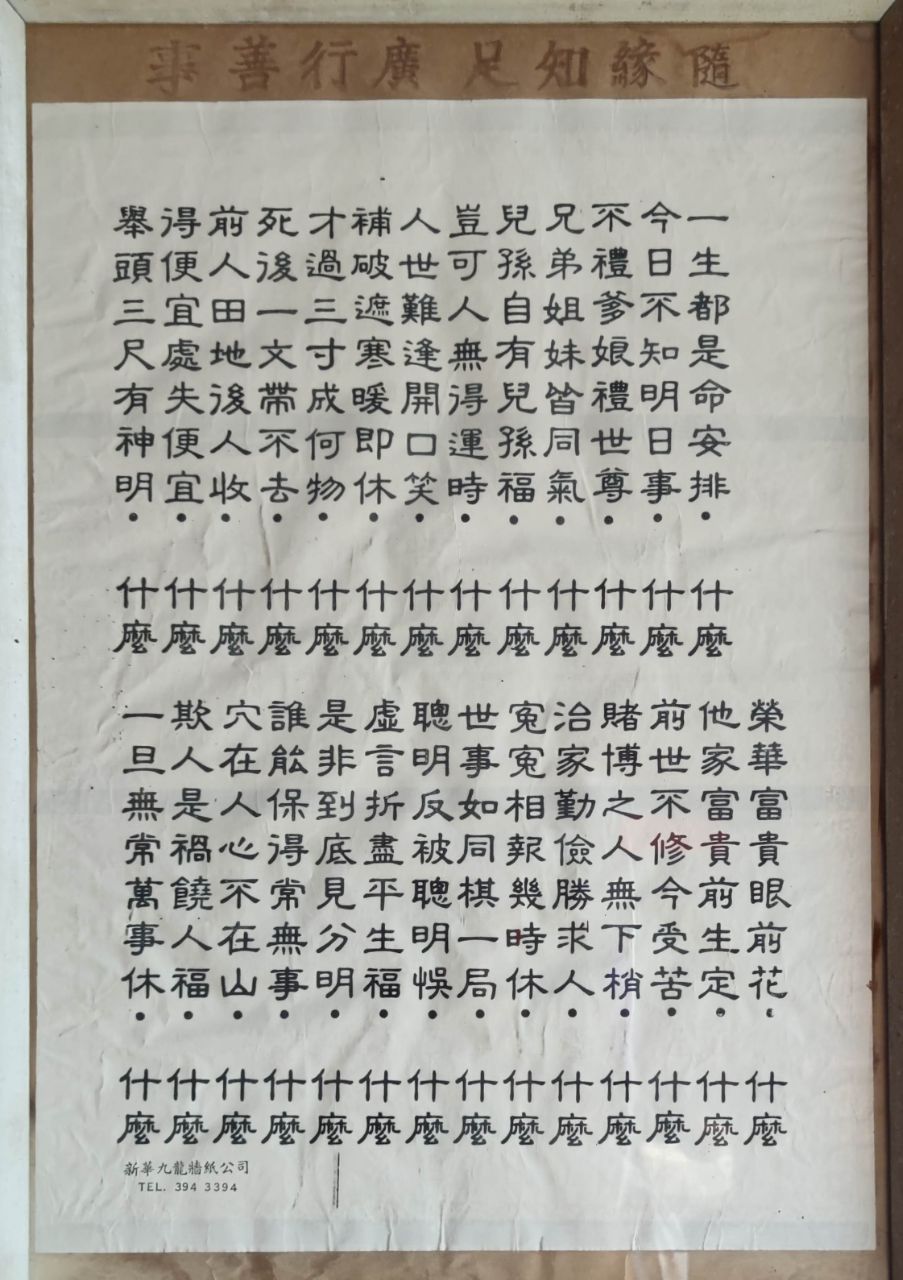 隨緣知足 廣行善事
一生都是命安排•什麼
今日不知明日事•什麼
不禮爹娘禮世尊•什麼
兄弟姐妹皆同氣•什麼
兒孫自有兒孫福•什麼
豈可人無得運時•什麼
人世難逢開口笑•什麼
補破遮寒暖即休•什麼
才過三寸成何物•什麼
死後一文帶不去•什麼
前人田地後人收•什麼
得便宜處失便宜•什麼
舉頭三尺有神明•什麼
榮華富貴眼前花•什麼
他家富貴前生定•什麼
前世不修今受苦•什麼
賭博之人無下梢•什麼
治家勤儉勝求人•什麼
寃寃相報幾時休•什麼
世事如同棋一局•什麼
聰明反被聰明悞•什麼
虛言折盡平生福•什麼
是非到底見分明•什麼
誰能保得常無事•什麼
穴在人心不在山•什麼
欺人是禍饒人福•什麼
一旦無常萬事休•什麼
新華九龍牆紙公司
TEL. 394 3394